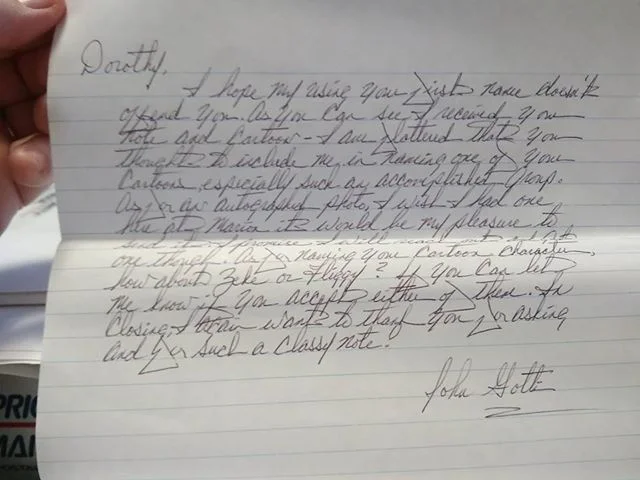 Dorothy,
I hope my using your first name doesn't
offend you. As you can see I received your
note and Cartoon - I am flattered that you
thought to include me in naming one of your
Cartoons, especially such an accomplished group.
As for an autographed photo, I wish I had one
here at Marion it would be my pleasure to
send it I promise I will
one though. As for naming your Cartoon Character,
how about Zeke or Fliggy? If you can let
me know if you accept either of them. In
Closing, I again want to thank you for asking
and for such a classy note.
John Gotti
PRIC
MAI